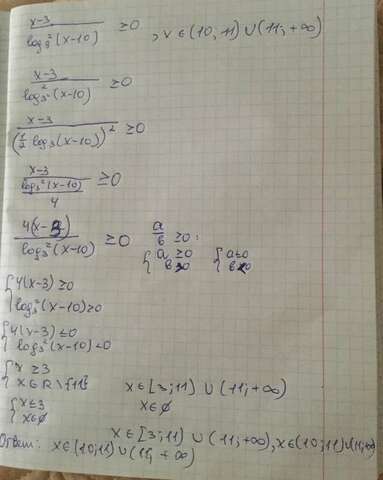 (x-3)/(log₉²(x-10)) ≥0 , x∈(10;11)∪(11;+∞)
(x-3)/(log²₃²(x-10)) ≥0
(x-3)/((1/2 log₃(x-10))²) ≥0
(x-3)/(log₃²(x-10)/4) ≥0
4(x-3)/(log₃²(x-10)) ≥0 a/b ≥0:
{a≥0 b>0 {a≤0 b<0
{4(x-3)≥0
log₃²(x-10)>0
{4(x-3)≤0
log₃²(x-10)<0
{x≥3
x∈R\{11} x∈[3;11)∪(11;+∞)
{x≤3 x∈∅
x∈∅
x∈[3;11)∪(11;+∞), x∈(10;11)∪(11;+∞)
Ответ: x∈(10;11)∪(11;+∞)